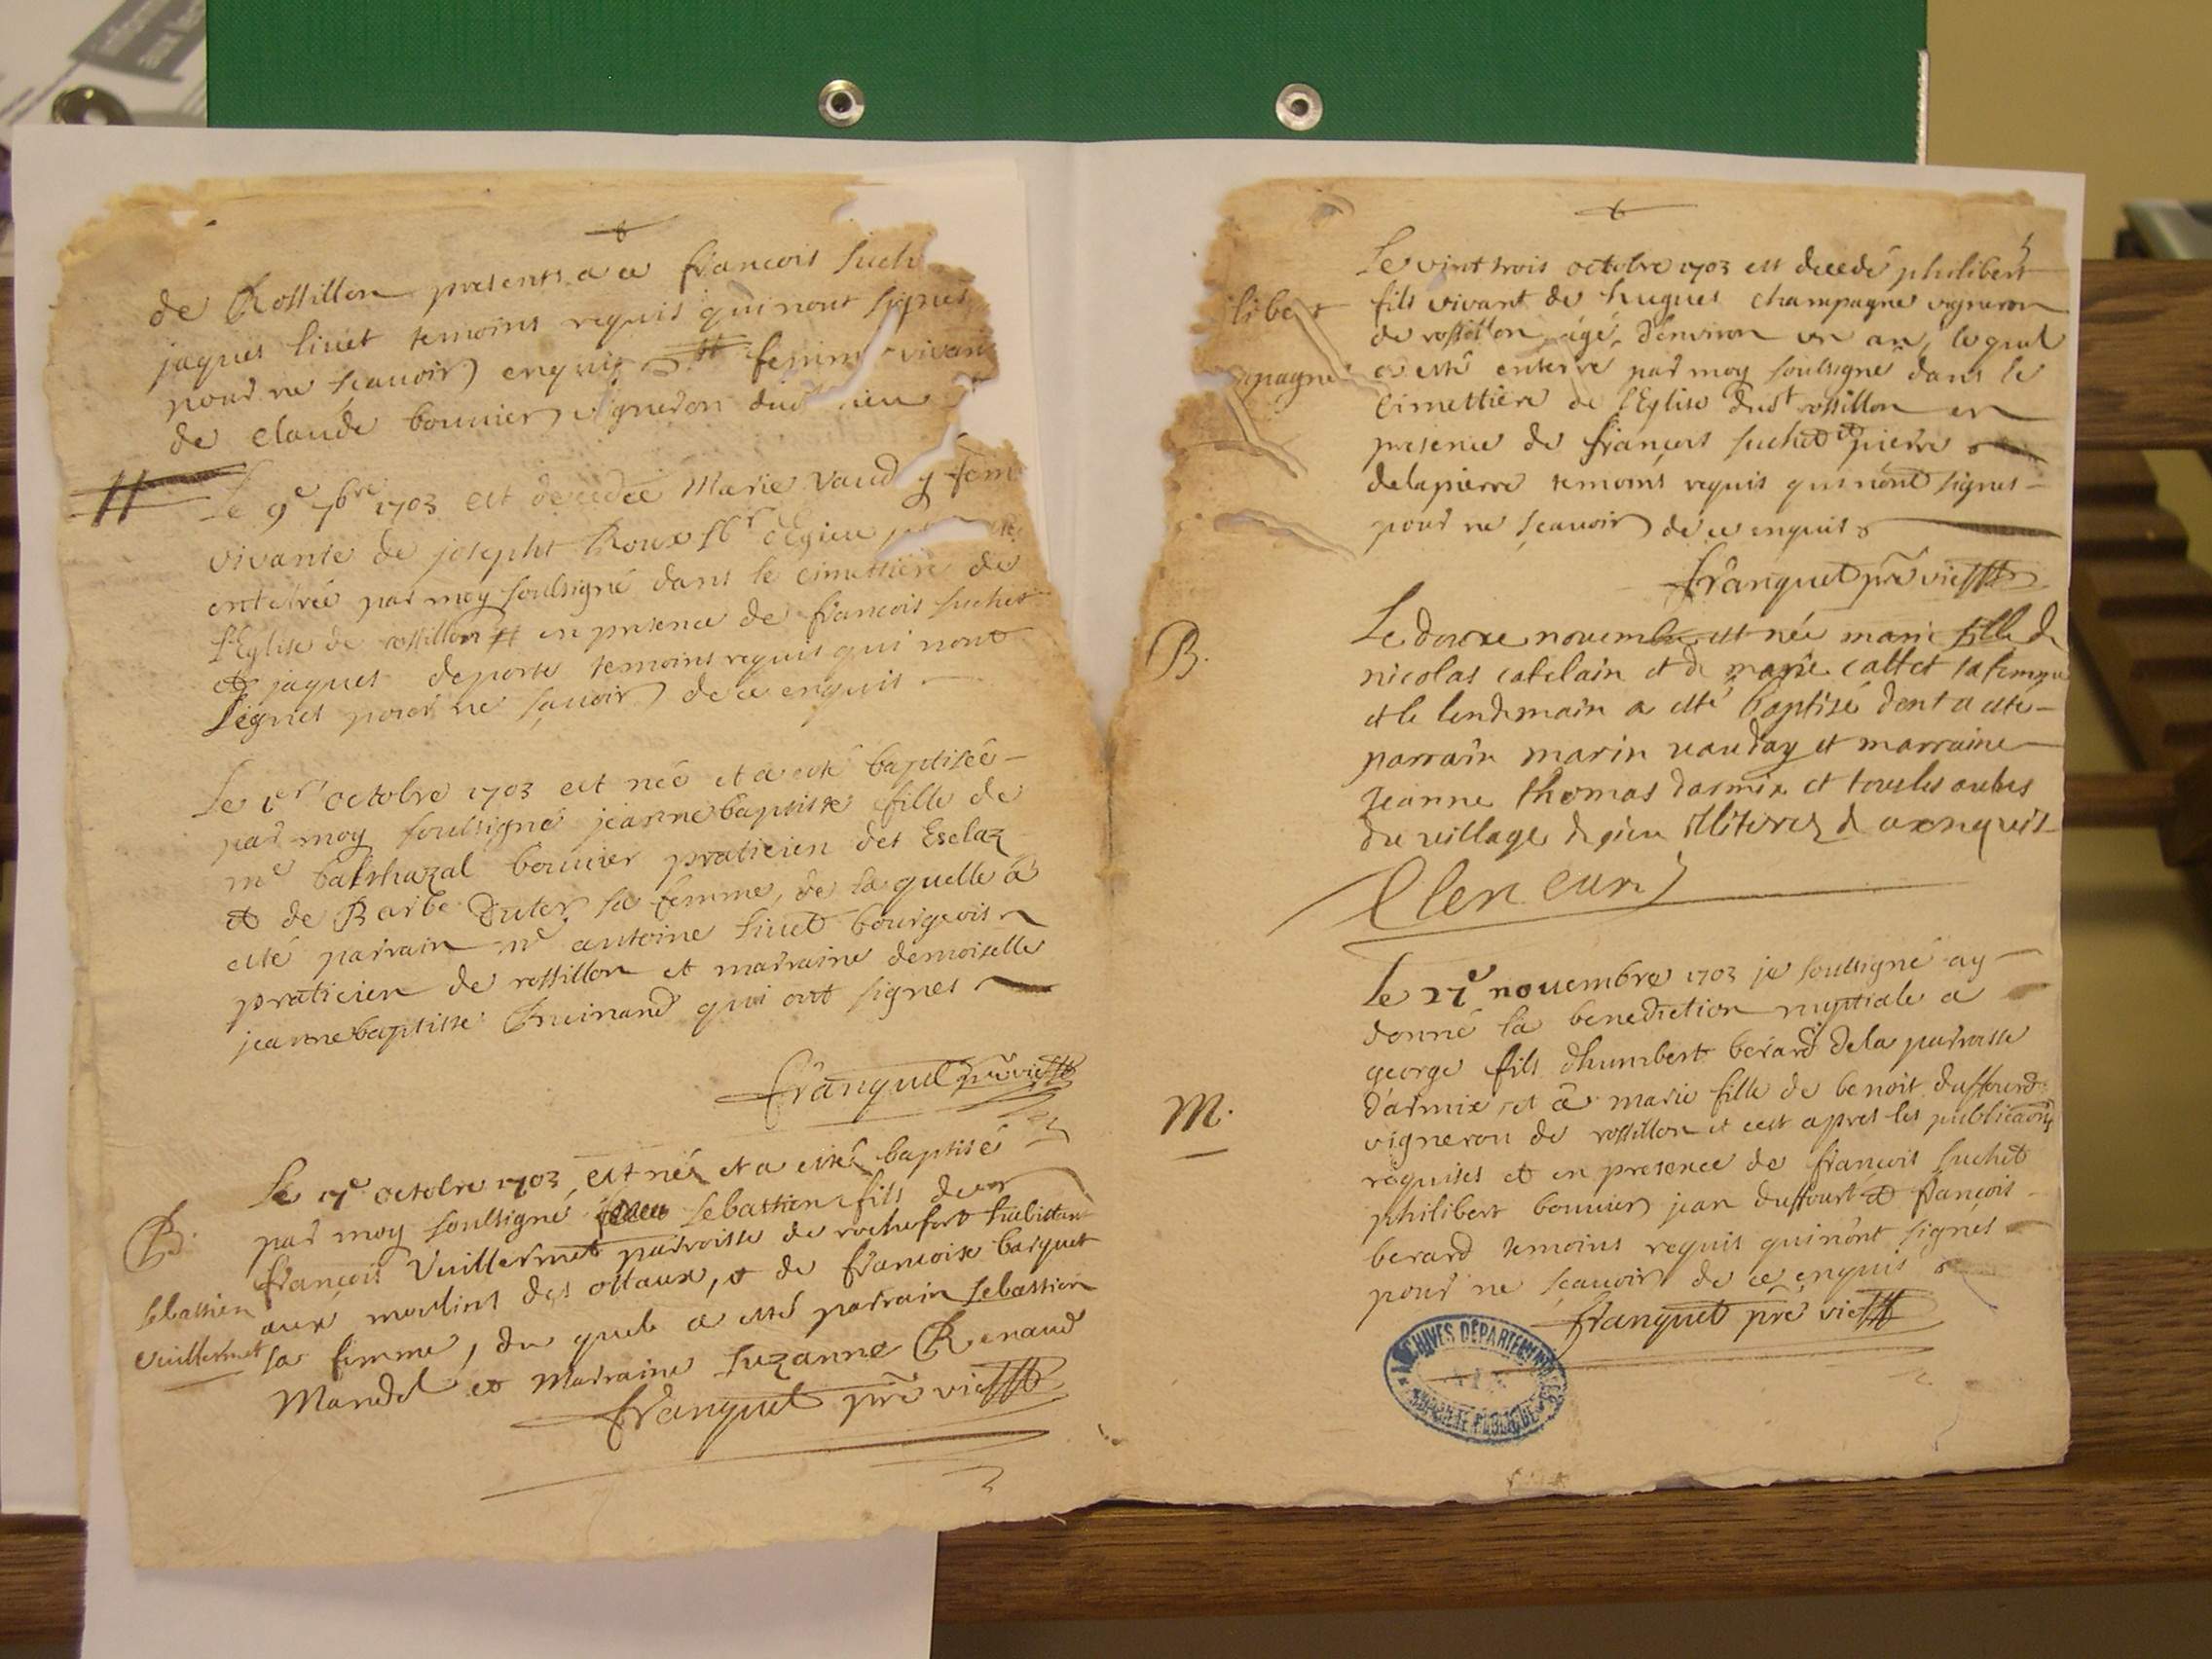 de Rossillon presents a ce francois Such
jaques livet temoins requis qui nont signes
pour ne sçauoir enquis # femme vivan
de claude bouuier vigneron dud lieu
Le 9e 7bre 1703 est decedée Marie Vaud y fem
vivante de joseph Roux sbr dEgieu
enterée par moy soussigné dans le cimettiere de
l'Eglise de rossillon # en presence de francois suchet
et jaques deporte temoins requis qui nont
signes pour ne sçauoir de ce enquis
Le 1er octobre 1703 est née et a esté baptisée
par moy soussigné jeanne baptiste fille de
me balthazal bouuier praticien des Esclaz
et de Barbe Duter sa femme, de la quelle a
esté parrain me antoine livet bourgeois
praticien de rossillon et marraine demoiselle
jeanne baptiste Guinand qui ont signes
franquet pre vic
B.
Sebastien
Vuillermet
Le 17e octobre 1703 est née et a esté baptisé
par moy soussigné Sebastien fils de
francois Vuillermet parroisse de rochefort habitant
aux moulins des ostaux, et de francoise barquet
sa femme, du quel a esté parrain Sebastien
Mandel et Marraine Suzanne Renaud
franquet pre vic
libert
mpagne
Le vint trois octobre 1703 est decedé philibert
fils vivant de hugues champagne vigneron
de rossillon agé d'environ un an, lequel
a esté enterré par moy soussigné dans le
cimettiere de l'Eglise dudt rossillon en
presence de françois suchet et pierre
delapierre temoins requis qui n'ont signes
pour ne sçauoir de ce enquis
franquet pre vic
B.
Le douxe novembre est née marie fille de
nicolas catelain et de marie callet sa femme
et le lendemain a esté baptisé dont a esté
parrain marin vauday et marraine
Jeanne thomas darmix et tous les autres
du village degieu illiterez de ce enquis
Clencurs
M.
Le 27e novembre 1703 je soussigné ay
donné la benediction nuptiale a
george fils dhumbert berard dela parroisse
d'armix, et â marie fille de benoit duffourd
vigneron de rossillon et cest apres les publicaons
requises et en presence de francois suchet
philibert bouuier jean duffourt et françois
berard temoins requis qui n'ont signés
pour ne sçauoir de ce enquis
franquet pre vic
ARCHIVES DÉPARTEMENTALES